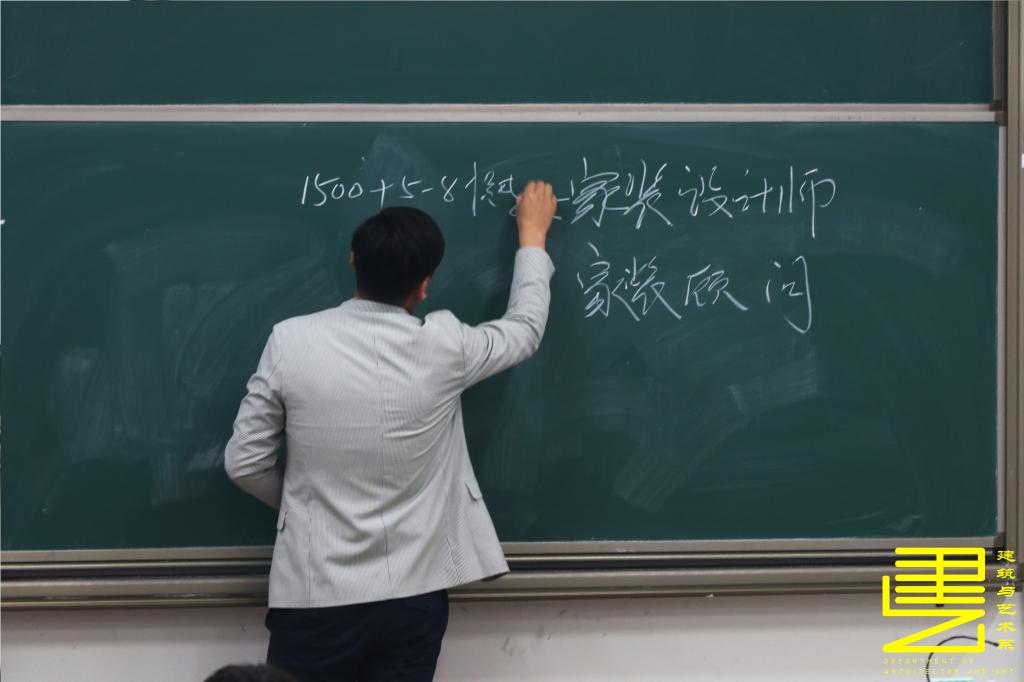 1500+5-8 家装设计师
家装顾问
建筑与艺术系
DEPARTMENT OF
ARCHITECTRE AND ART